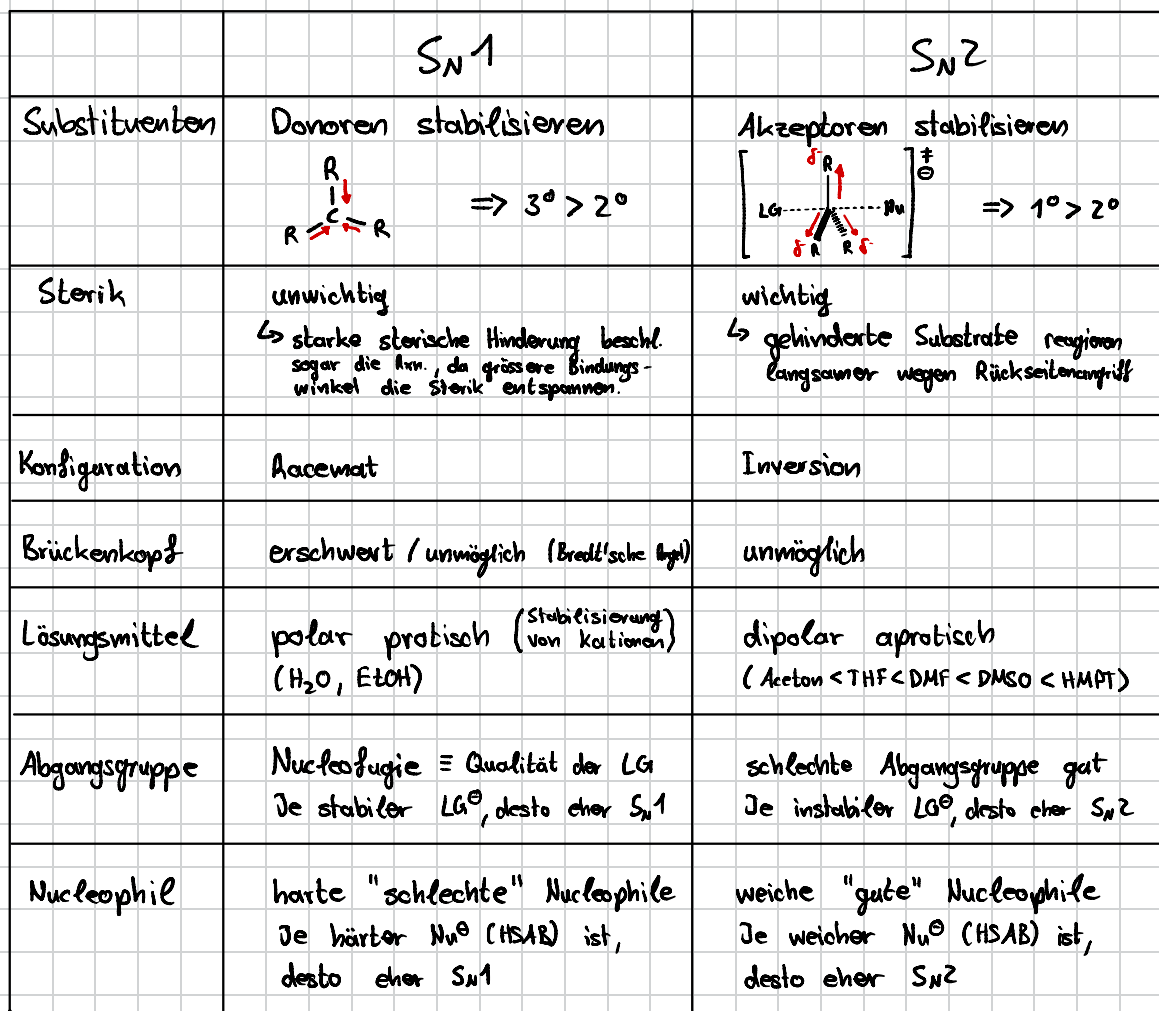 S_N1
S_N2
Substituenten
Donoren stabilisieren
R
C
R
R
⇒ 3° > 2°
Akzeptoren stabilisieren
δ⁻ R
LG
Nu
δ⁻ R
R δ⁻
‡
⊖
⇒ 1° > 2°
Sterik
unwichtig
↳ starke sterische Hinderung beschl.
sogar die Rxn., da grössere Bindungs-
winkel die Sterik entspannen.
wichtig
↳ gehinderte Substrate reagieren
langsamer wegen Rückseitenangriff
Konfiguration
Racemat
Inversion
Brückenkopf
erschwert / unmöglich (Bredt'sche Regel)
unmöglich
Lösungsmittel
polar protisch (Stabilisierung
von Kationen)
(H₂O, EtOH)
dipolar aprotisch
(Aceton < THF < DMF < DMSO < HMPT)
Abgangsgruppe
Nucleofugie ≡ Qualität der LG
Je stabiler LG⊖, desto eher S_N1
schlechte Abgangsgruppe gut
Je instabiler LG⊖, desto eher S_N2
Nucleophil
harte "schlechte" Nucleophile
Je härter Nu⊖ (HSAB) ist,
desto eher S_N1
weiche "gute" Nucleophile
Je weicher Nu⊖ (HSAB) ist,
desto eher S_N2